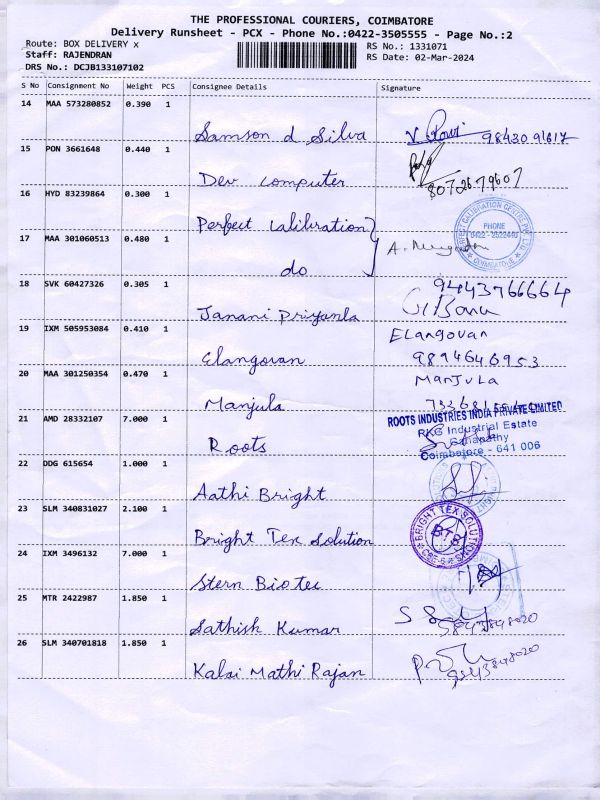 THE PROFESSIONAL COURIERS, COIMBATORE
Delivery Runsheet - PCX - Phone No.:0422-3505555 - Page No.:2
Route: BOX DELIVERY x
RS No.: 1331071
Staff: RAJENDRAN
RS Date: 02-Mar-2024
DRS No.: DCJB133107102
S No Consignment No Weight PCS Consignee Details Signature
14 MAA 573280852 0.390 1
Samson d Silva 9843091617
15 PON 3661648 0.440 1
Dev computer 8072679607
16 HYD 83239864 0.300 1
Perfect Calibration
PHONE
COIMBATORE
17 MAA 301060513 0.480 1
do
18 SVK 60427326 0.305 1
9443766664
Janani Priyanka
19 IXM 505953084 0.410 1
Elangovan
Elangovan 9894646953
20 MAA 301250354 0.470 1
Manjula
Manjula
21 AMD 28332107 7.000 1
ROOTS INDUSTRIES INDIA PRIVATE LIMITED
RKG Industrial Estate
Ganapathy
Coimbatore - 641 006
Roots
22 DDG 615654 1.000 1
Aathi Bright
23 SLM 340831027 2.100 1
Bright Tex Solution
BRIGHT TEX SOLUTIONS
BTS
CBE-6
24 IXM 3496132 7.000 1
Stern Biotec
25 MTR 2422987 1.850 1
Sathish Kumar
26 SLM 340701818 1.850 1
Kalai Mathi Rajan